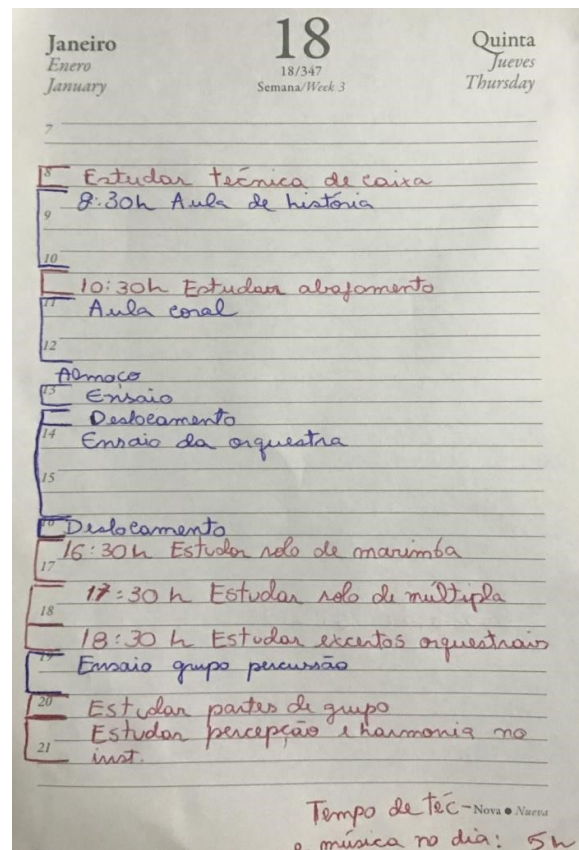 Janeiro
Enero
January
18
18/347
Semana/Week 3
Quinta
Jueves
Thursday
7
8 Estudar técnica de caixa
8:30h Aula de história
9
10
10:30h Estudar abafamento
11 Aula coral
12
Almoço
13 Ensaio
Deslocamento
14 Ensaio da orquestra
15
16 Deslocamento
16:30h Estudar solo de marimba
17
17:30h Estudar solo de múltipla
18
18:30h Estudar excertos orquestrais
19 Ensaio grupo percussão
20 Estudar partes de grupo
Estudar percepção e harmonia no
21 inst.
Tempo de téc- Nova • Nueva
e música no dia: 5h